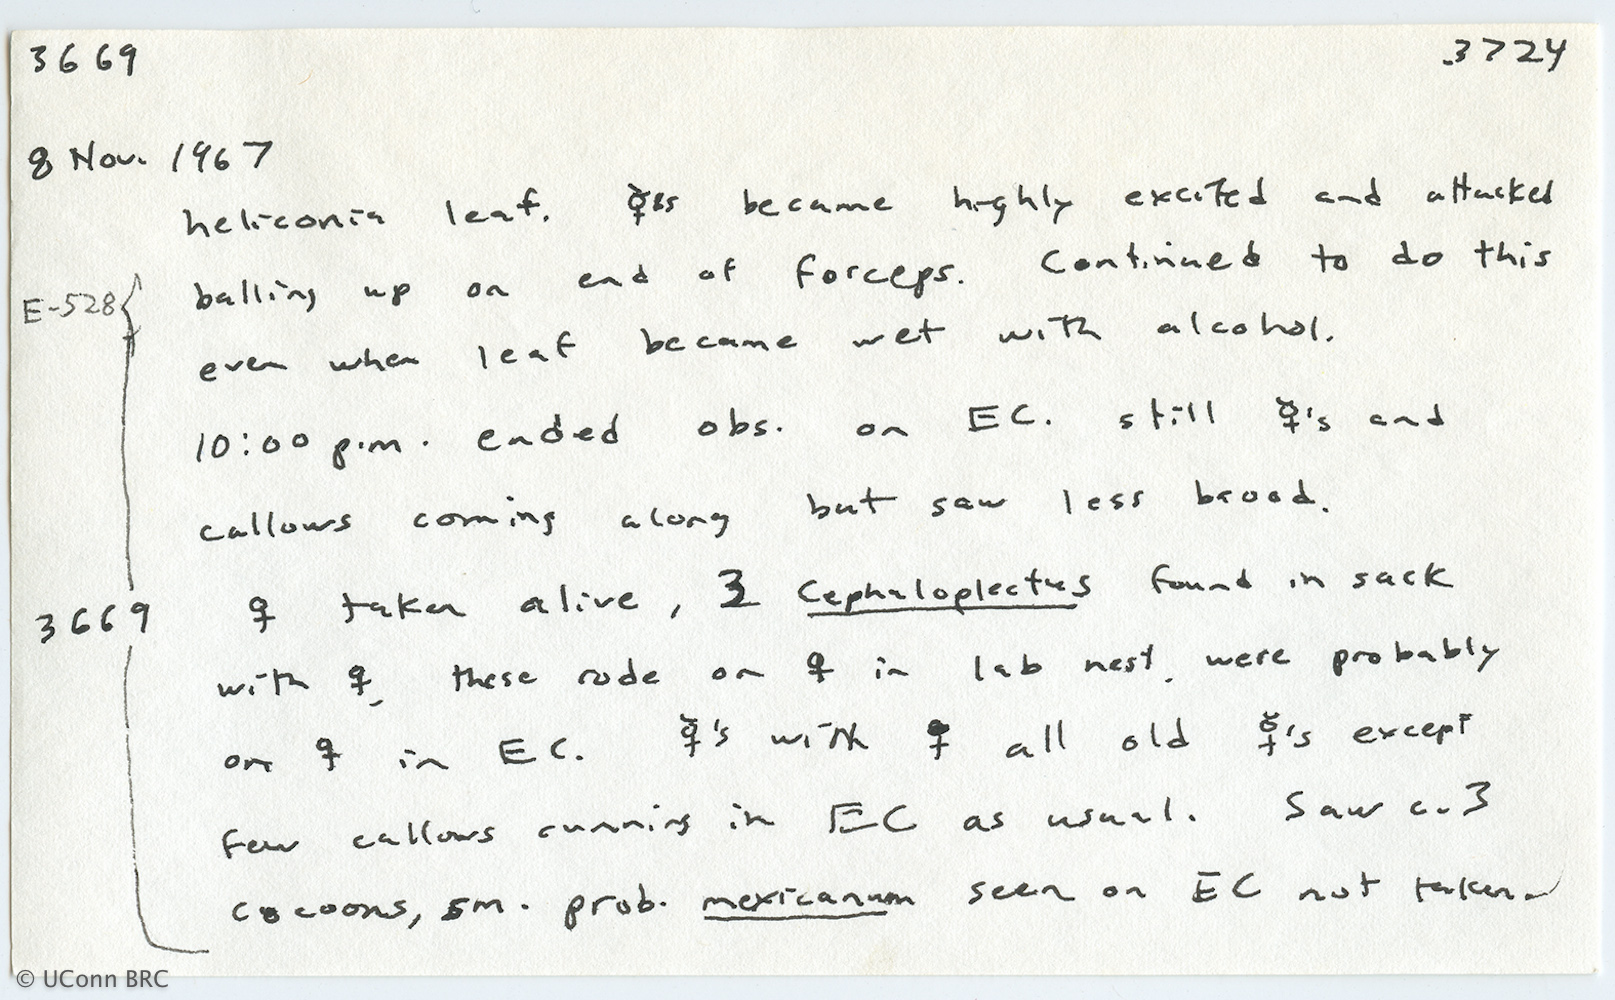 3669 3724
8 Nov. 1967
heliconia leaf. ☿ss became highly excited and attacked
E-528 { balling up on end of forceps. Continued to do this
even when leaf became wet with alcohol.
10:00 p.m. ended obs. on EC. still ☿'s and
callows coming along but saw less brood.
3669 ♀ taken alive, Cephaloplectus found in sack
with ♀, these rode on ♀ in lab nest, were probably
on ♀ in EC. ☿'s with ♀ all old ☿'s except
few callows running in EC as usual. Saw c. 3
cocoons, sm. prob. mexicanum seen on EC not taken.
© UConn BRC